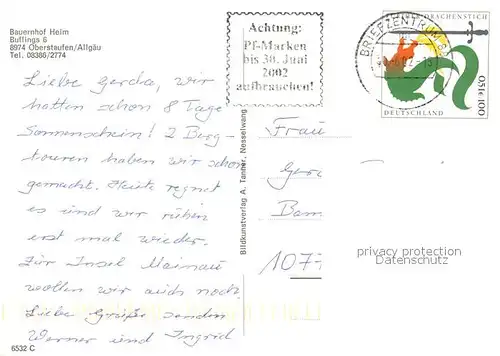 Bauernhof Heim
Buflings 6
8974 Oberstaufen/Allgäu
Tel. 08386/2774
Achtung:
Pf-Marken
bis 30. Juni
2002
aufbrauchen!
BRIEFZENTRUM
DRACHENSTICH
0,51€ 100
DEUTSCHLAND
Liebe Gerda, wir
hatten schon 8 Tage
Sonnenschein! 2 Berg-
touren haben wir schon
gemacht. Heute regnet
es und wir ruhen
erst mal wieder.
Zur Insel Mainau
wollen wir auch noch
Liebe Grüße senden
Werner und Ingrid
Bildkunstverlag A. Tanner, Nesselwang
Frau
Ger
1077
privacy protection
Datenschutz
6532 C